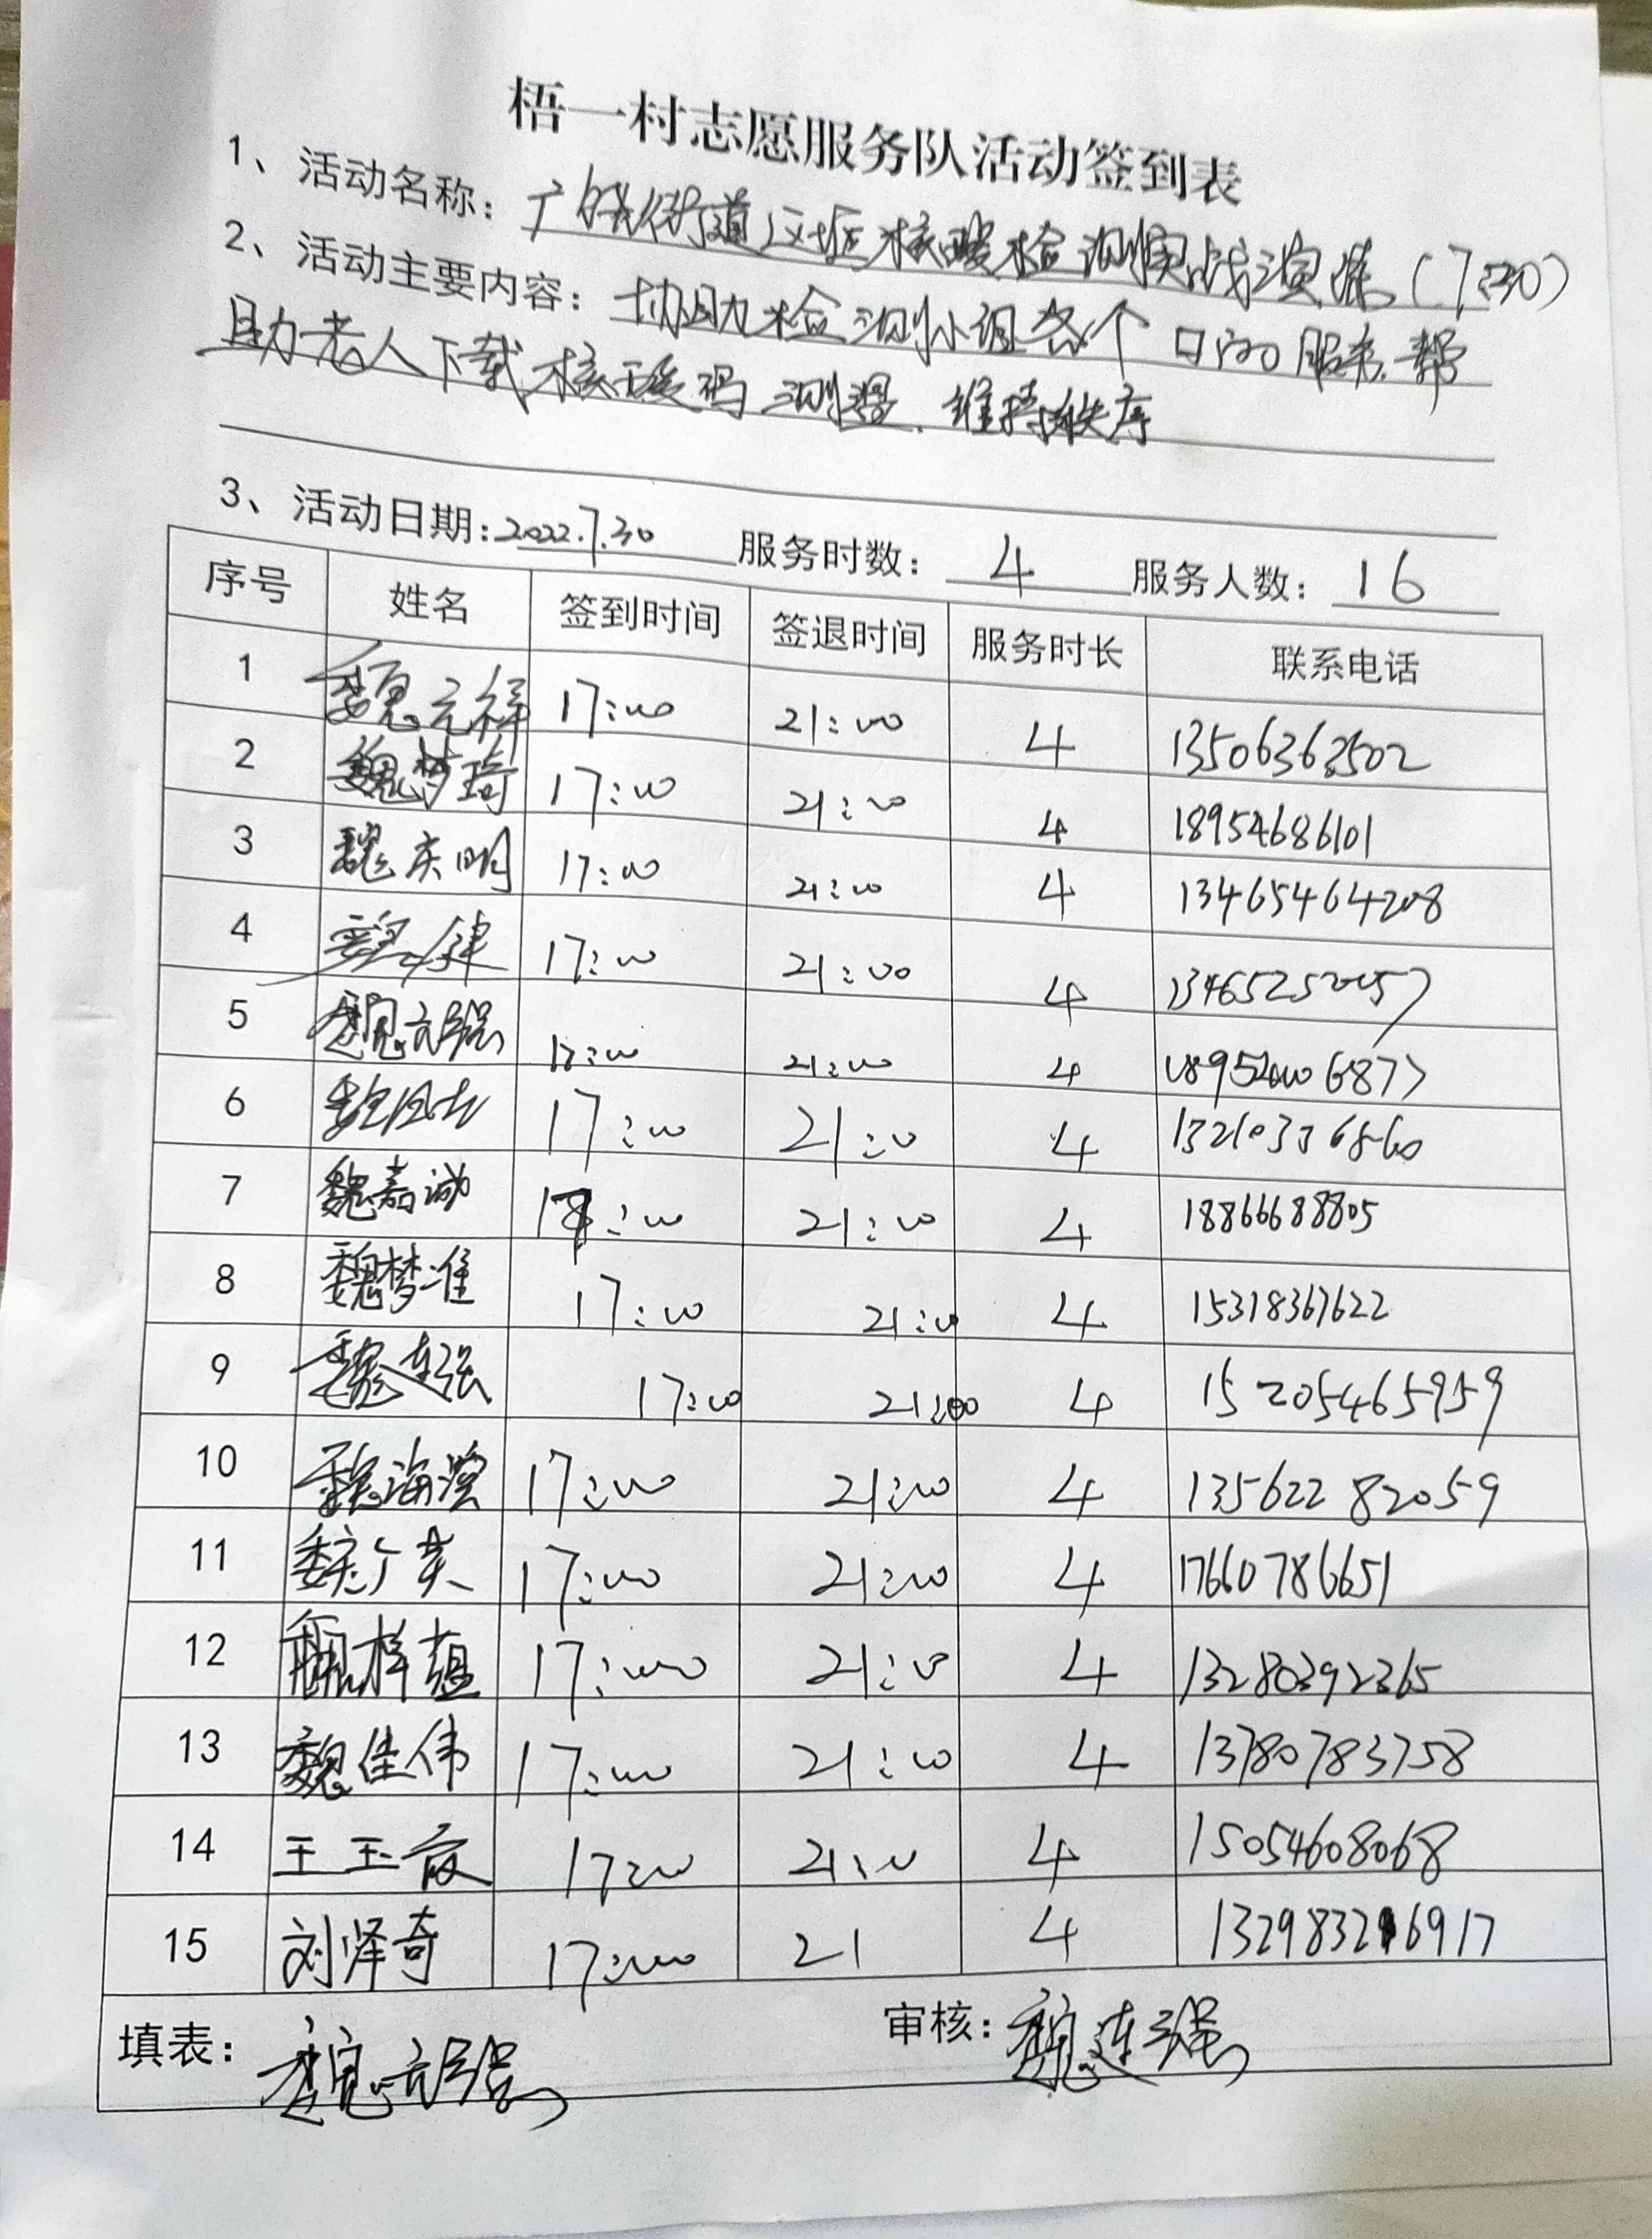 梧一村志愿服务队活动签到表
1、活动名称：广饶街道区域核酸检测实战演练（7.30）
2、活动主要内容：协助检测小组各个口的服务.帮
助老人下载核酸码 测温.维持秩序
3、活动日期:2022.7.30 服务时数：4 服务人数：16
序号 姓名 签到时间 签退时间 服务时长 联系电话
1 魏元祥 17:00 21:00 4 13506362502
2 魏梦琦 17:00 21:00 4 18954686101
3 魏庆明 17:00 21:00 4 13465464208
4 魏 17:00 21:00 4
5 魏元强 17:00 21:00 4
6 17:00 21:00 4
7 魏嘉诚 21:00 4 18866688805
8 魏梦准 17:00 21:00 4 15318367622
9 魏连强 17:00 21:00 4 15205465959
10 魏海滨 17:00 21:00 4 13562282059
11 魏广英 17:00 21:00 4 17660786651
12 魏梓蕴 17:00 21:00 4 13280392365
13 魏佳伟 17:00 21:00 4 13780783758
14 王玉 17:00 21:00 4 15054608068
15 刘泽奇 17:00 21 4
填表：魏元强 审核：魏连强